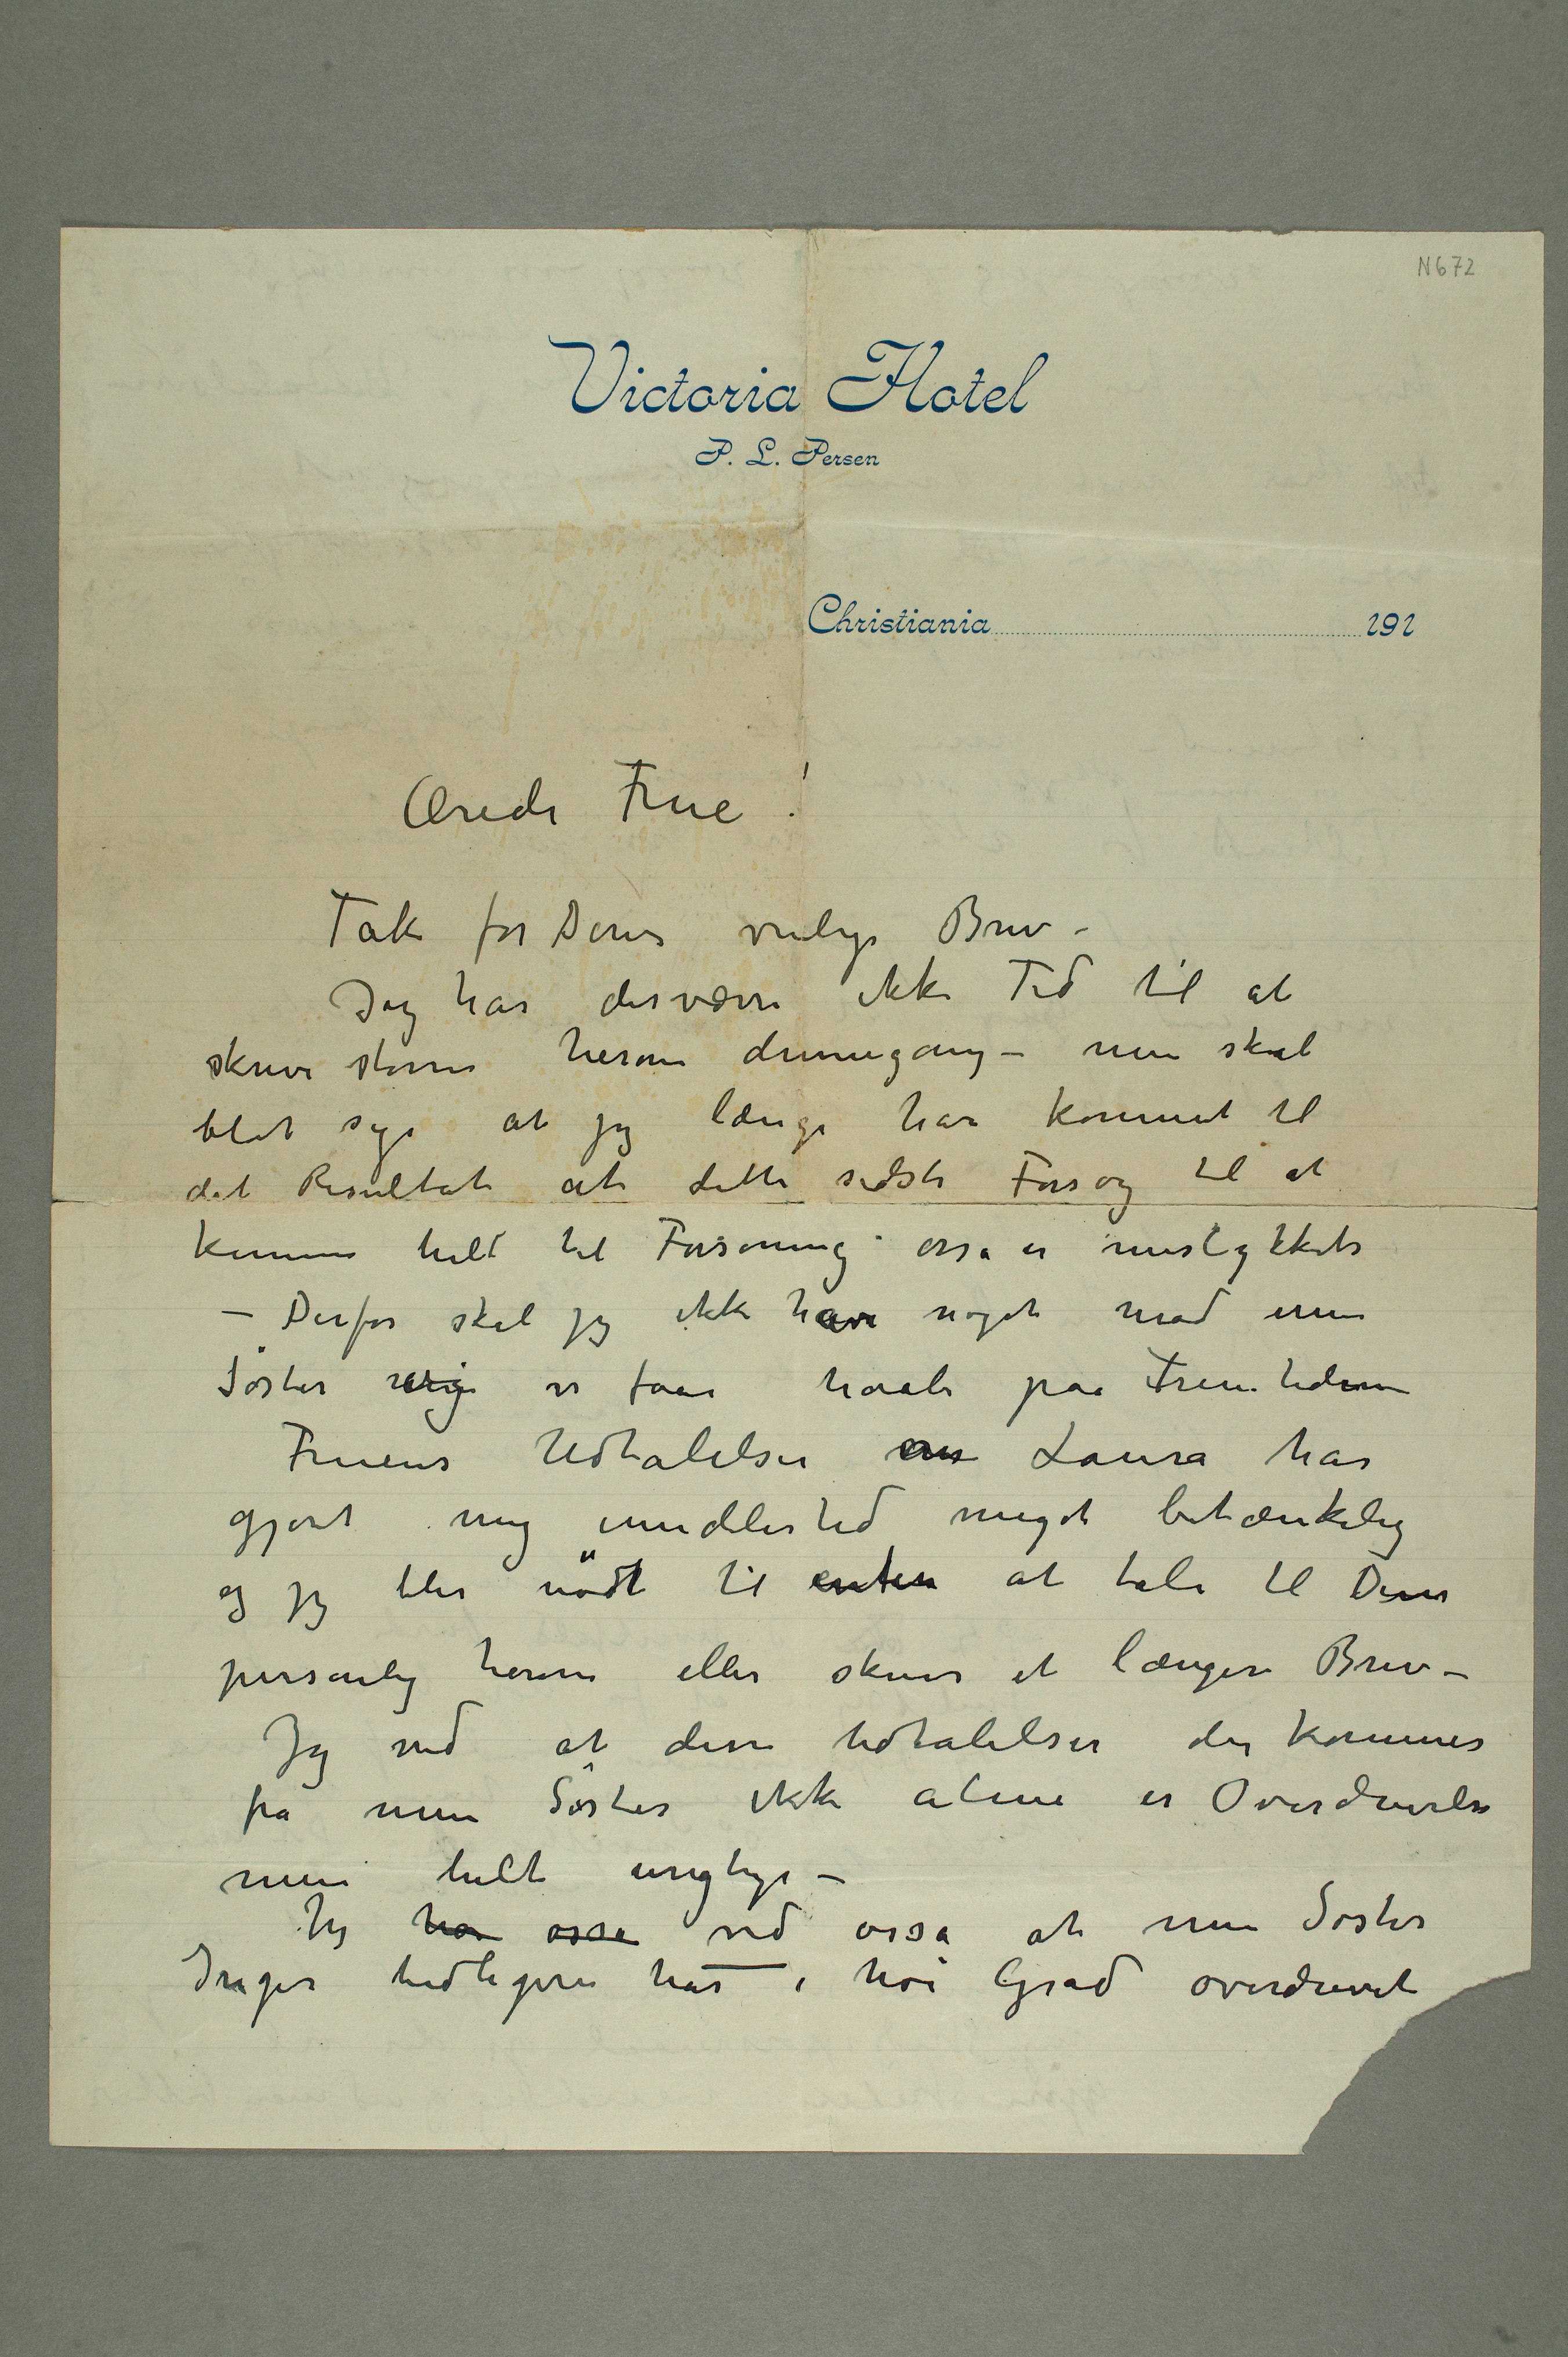 N672
Victoria Hotel
P. L. Persen
Christiania 191
Ærede Frue!
Tak for Deres venlige Brev –
Jeg har desværre ikke Tid til at
skrive større herom dennegang – men skal
blot sige at jeg længe har kommet til
det Resultat at dette sidste Forsøg til at
komme helt til Forsoning osså er mislykket
– Derfor skal jeg ikke have noget mod min
Söster vi faar haabe paa Fremtiden
Fruens Udtalelser om Laura har
gjort mig imidlertid meget betænkelig
og jeg blir nödt til enten at tale til Dem
personlig herom eller skrive et længere Brev –
Jeg ved at disse Udtalelser der kommer
fra min Söster ikke alene er Overdrivelse
men helt urigtige –
Jeg har osså ved osså at min Søster
Inger tidligere har i høi Grad overdrevet